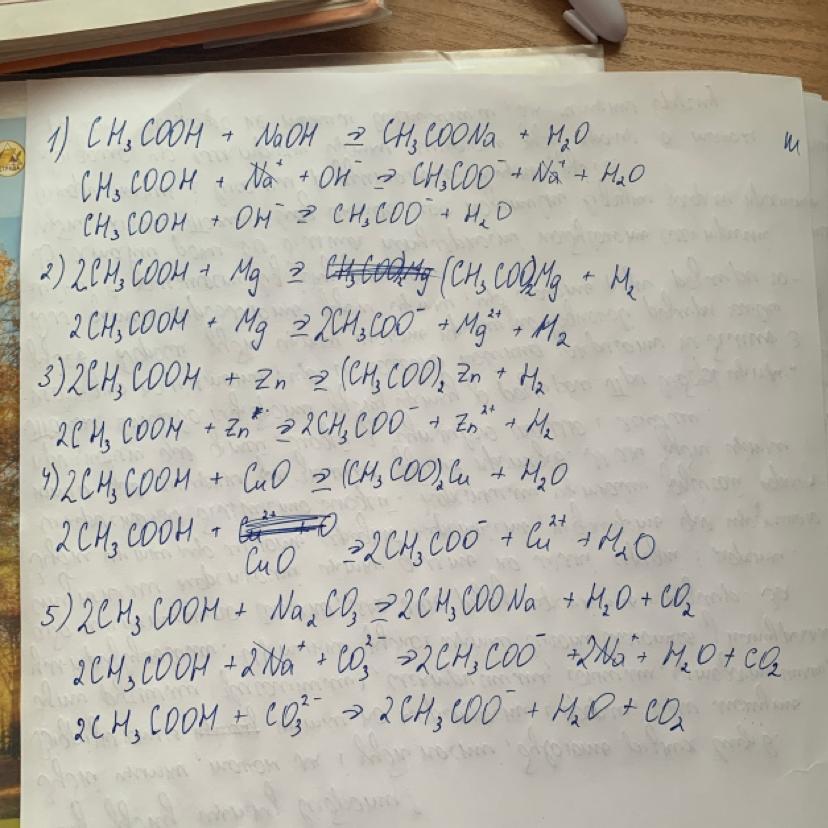 1) CH₃COOH + NaOH ⇒ CH₃COONa + H₂O
CH₃COOH + Na⁺ + OH⁻ ⇒ CH₃COO⁻ + Na⁺ + H₂O
CH₃COOH + OH⁻ ⇒ CH₃COO⁻ + H₂O
2) 2CH₃COOH + Mg ⇒ (CH₃COO)₂Mg + H₂
2CH₃COOH + Mg ⇒ 2CH₃COO⁻ + Mg²⁺ + H₂
3) 2CH₃COOH + Zn ⇒ (CH₃COO)₂Zn + H₂
2CH₃COOH + Zn ⇒ 2CH₃COO⁻ + Zn²⁺ + H₂
4) 2CH₃COOH + CuO ⇒ (CH₃COO)₂Cu + H₂O
2CH₃COOH + CuO ⇒ 2CH₃COO⁻ + Cu²⁺ + H₂O
5) 2CH₃COOH + Na₂CO₃ ⇒ 2CH₃COONa + H₂O + CO₂
2CH₃COOH + 2Na⁺ + CO₃²⁻ ⇒ 2CH₃COO⁻ + 2Na⁺ + H₂O + CO₂
2CH₃COOH + CO₃²⁻ ⇒ 2CH₃COO⁻ + H₂O + CO₂